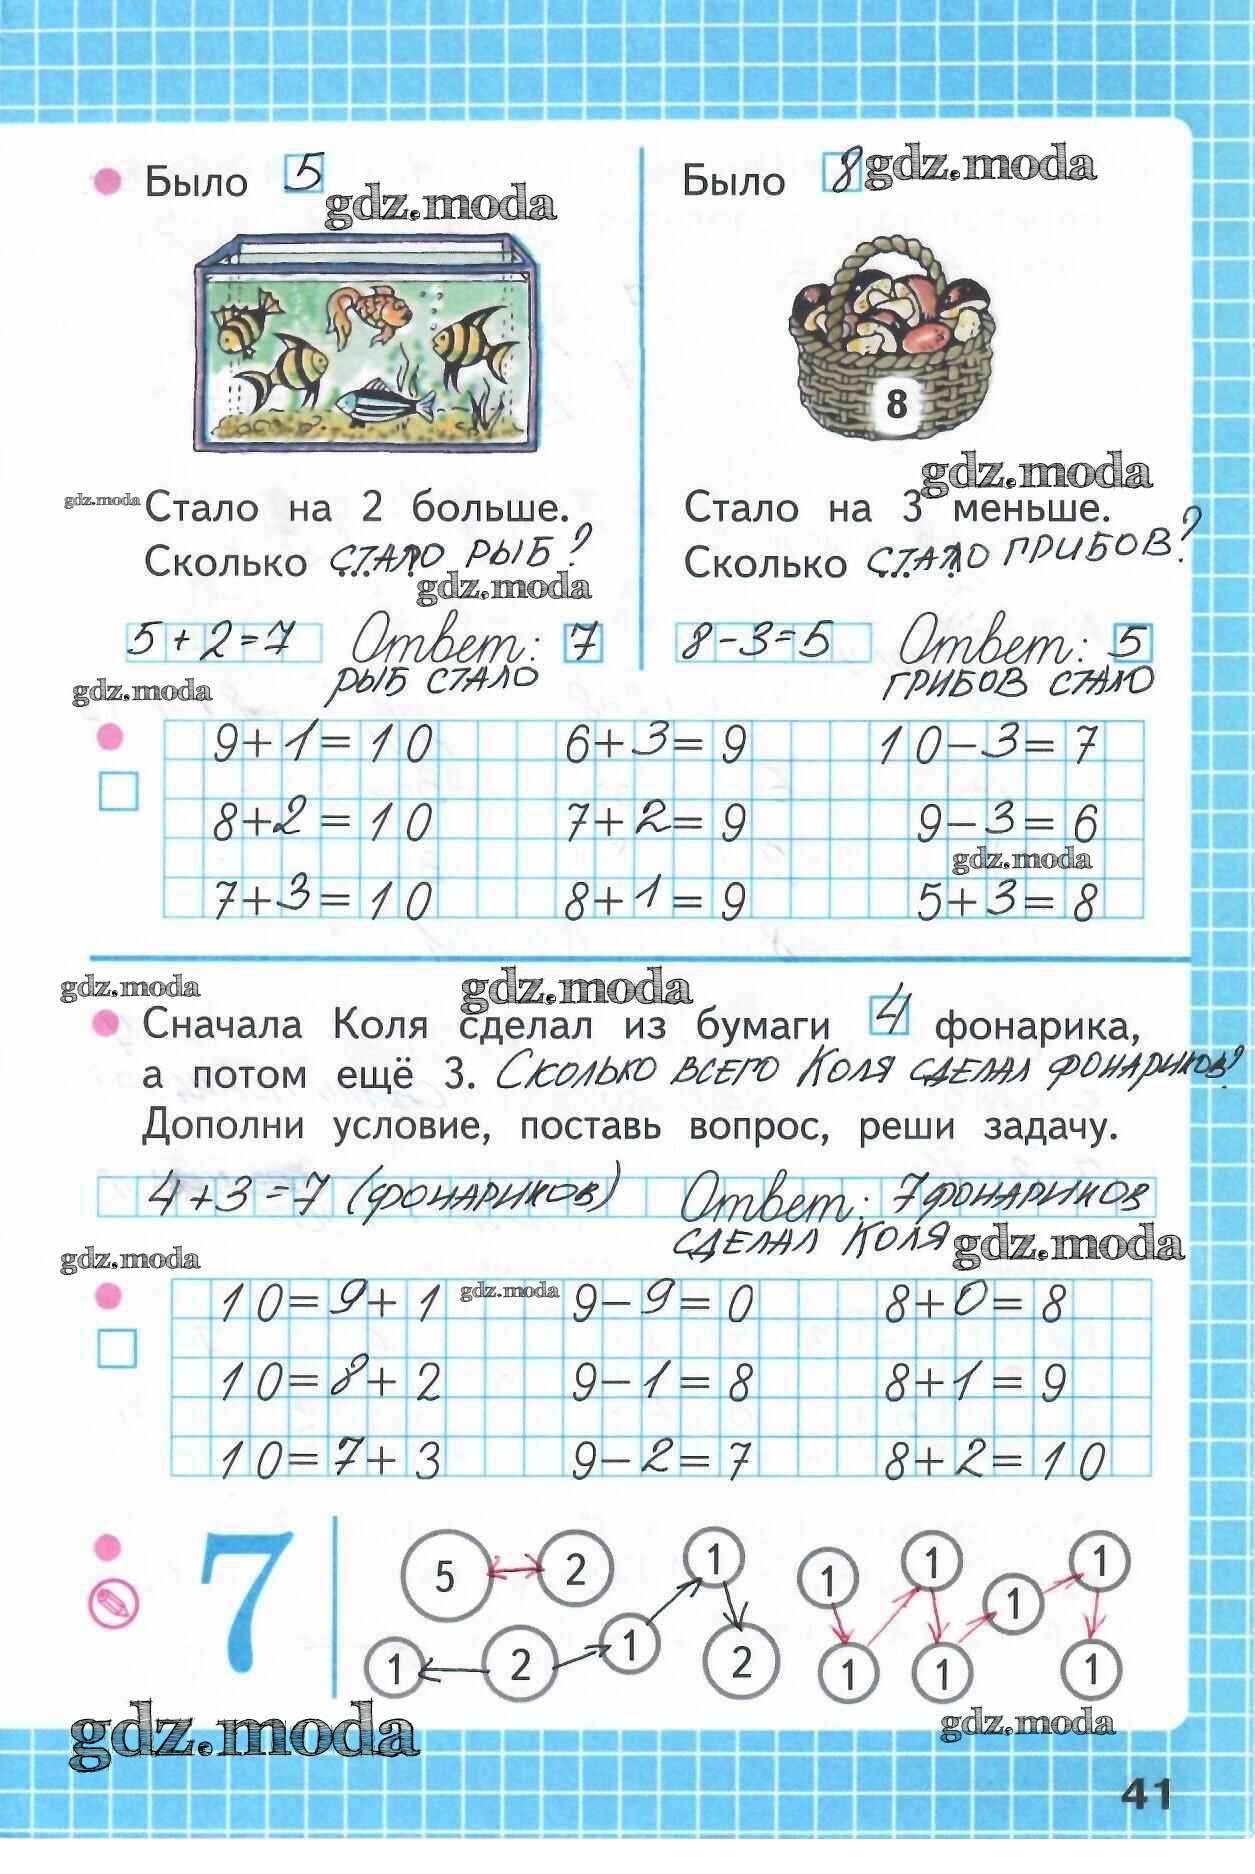 Было 5
gdz.moda
Было 8
gdz.moda
8
gdz.moda
gdz.moda
Стало на 2 больше.
Сколько СТАЛО РЫБ?
gdz.moda
Стало на 3 меньше.
Сколько СТАЛО ГРИБОВ?
5+2=7 Ответ: 7
РЫБ СТАЛО
8-3=5 Ответ: 5
ГРИБОВ СТАЛО
gdz.moda
9+1=10 6+3=9 10-3=7
8+2=10 7+2=9 9-3=6
gdz.moda
7+3=10 8+1=9 5+3=8
gdz.moda gdz.moda
Сначала Коля сделал из бумаги 4 фонарика,
а потом ещё 3. СКОЛЬКО ВСЕГО КОЛЯ СДЕЛАЛ ФОНАРИКОВ?
Дополни условие, поставь вопрос, реши задачу.
4+3=7 (ФОНАРИКОВ) Ответ: 7 ФОНАРИКОВ
СДЕЛАЛ КОЛЯ
gdz.moda gdz.moda
gdz.moda
10=9+1 9-9=0 8+0=8
10=8+2 9-1=8 8+1=9
10=7+3 9-2=7 8+2=10
7
5 2 1 1 1 1 1
1 2 1 2 1 1 1
gdz.moda gdz.moda
41